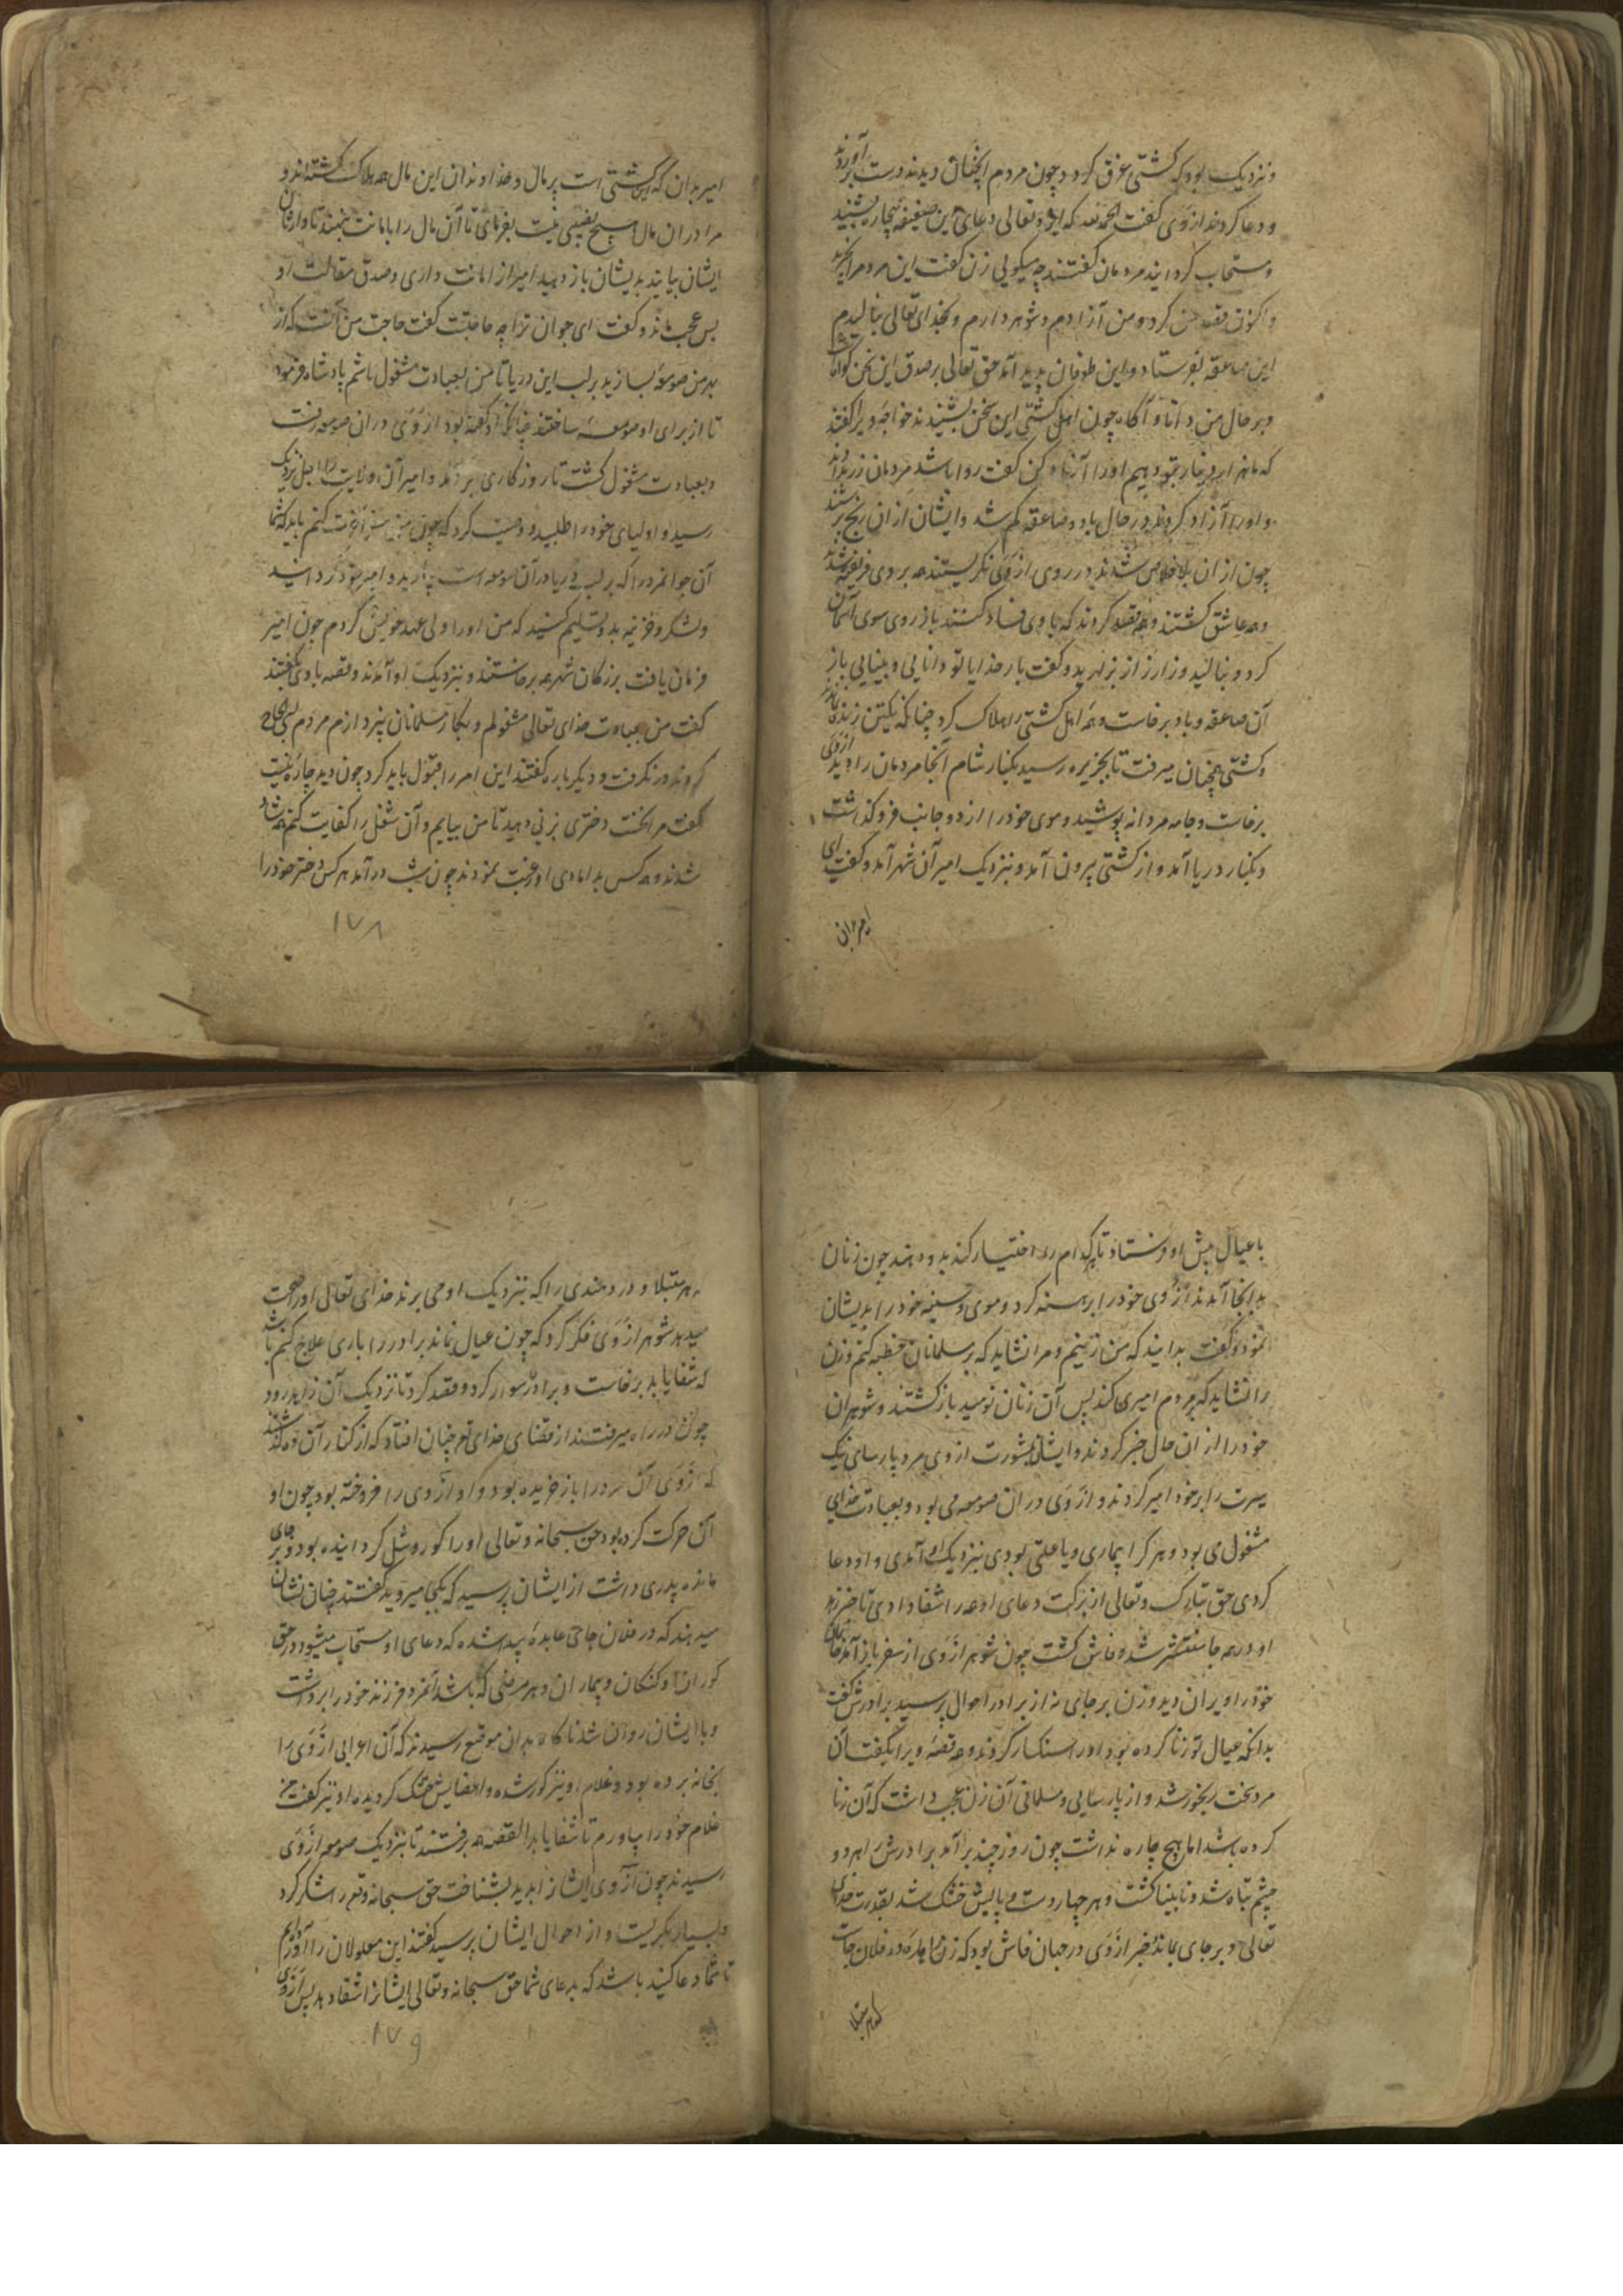 و نزدیک بود که کشتی غرق گردد چون مردم آنچنان دیدند دست برآوردند
و دعا کردند ازوی گفت الحمدلله که ایزد تعالی دعای این ضعیفه بیچاره بشنید
و مستجاب گردانید مردمان گفتند چه میگویی زن گفت این مرد مرا بخرید
و اکنون قصد من کرد و من آزادم و شوهر دارم و بخدای تعالی بنالیدم
این صاعقه بفرستاد و این طوفان پدید آمد حق تعالی بر صدق این سخن گواه
و بر حال من دانا و آگاه چون اهل کشتی این سخن بشنیدند خواجه ویرا گفتند
که ما هزار دینار بتو دهیم او را آزاد کن گفت روا باشد مردمان زر بدادند
و او را آزاد کردند در حال باد و صاعقه کم شد و ایشان از آن رنج برستند
چون از آن بلا خلاص شدند در روی ازوی نگریستند همه بر وی فریفته شدند
و همه عاشق گشتند و همه قصد کردند که با وی فساد کنند باز روی سوی آسمان
کرد و بنالید و زار زار بزارید و گفت بار خدایا تو دانایی و بینایی باز
آن صاعقه و باد برخاست و همه اهل کشتی را هلاک کرد چنانکه یکتن زنده نماند
و کشتی همچنان میرفت تا بجزیره رسید بکنار شام آنجا مردمان را دید ازوی
برخاست و جامه مردانه پوشید و موی خود را از دو جانب فرو گذاشت
و بکنار دریا آمد و از کشتی بیرون آمد و نزدیک امیر آن شهر آمد و گفت ای
امیر بدان
امیر بدان که این کشتی است پر مال و خداوندان این مال همه هلاک گشته اند و
مرا در آن مال هیچ نصیبی نیست بفرمای تا آن مال را بامانت بنهند تا وارثان
ایشان بیایند بدیشان باز دهید امیر از امانت داری و صدق مقالت او
بس عجب ماند و گفت ای جوان ترا چه حاجتست گفت حاجت من آنست که از
بهر من صومعه بسازید بر لب این دریا تا من بعبادت مشغول باشم پادشاه فرمود
تا از برای او صومعه ساختند چنانکه او گفته بود ازوی در آن صومعه رفت
و بعبادت مشغول گشت تا روزگاری بر آمد و امیر آن ولایت را اجل نزدیک
رسید و اولیای خود را طلبید و وصیت کرد که چون من سفر آخرت کنم باید که شما
آن جوانمرد را که بر لب دریا در آن صومعه است بیارید و امیر خود گردانید
و لشکر و خزینه بدو تسلیم کنید که من او را ولی عهد خویش کردم چون امیر
فرمان یافت بزرگان شهر همه برخاستند و بنزدیک او آمدند و قصه باوی بگفتند
گفت من بعبادت خدای تعالی مشغولم و بکار مسلمانان نپردازم مردم بسی الحاح
کردند در نگرفت و دیگر باره گفتند این امر را قبول باید کرد چون دید چاره نیست
گفت مرا نخست دختری بزنی دهید تا من بیایم و آن شغل را کفایت کنم همه شاد
شدند و همه کس بدامادی او رغبت نمودند چون شب در آمد هر کس دختر خود را
۱۷۸
با عیال پیش او فرستاد تا هر کدام را اختیار کند بدو دهند چون زنان
بدانجا آمدند ازوی خود را برهنه کرد و موی و سینه خود را بدیشان
نمود و گفت بدانید که من زنیم و مرا نشاید که بر مسلمانان خطبه کنم و زن
را نشاید که بر مردم امیری کند پس آن زنان نومید باز گشتند و شوهران
خود را از آن حال خبر کردند و ایشان بمشورت ازوی مرد پارسای نیک
سیرت را بر خود امیر کردند و ازوی در آن صومعه می بود و بعبادت خدای
مشغول می بود و هر کرا بیماری و یا علتی بودی بنزدیک او آمدی و او دعا
کردی حق تبارک و تعالی از برکت دعای او همه را شفا دادی تا خبر زهد
او در همه جا منتشر شد و فاش گشت چون شوهر ازوی از سفر باز آمد خانمان
خود را ویران دید و زن بر جای نه از برادر احوال پرسید برادرش گفت
بدانکه عیال تو زنا کرده بود او را سنگسار کردند و همه قصه ویرا بگفت آن
مرد سخت رنجور شد و از پارسایی و مسلمانی آن زن عجب داشت که آن زنا
کرده باشد اما هیچ چاره نداشت چون روز چند بر آمد برادرش را هر دو
چشم تباه شد و نابینا گشت و هر چهار دست و پایش خشک شد بقدرت خدای
تعالی و بر جای بماند خبر ازوی در جهان فاش بود که زنی عابده در فلان جاست
که هر مبتلا
هر مبتلا و دردمندی را که بنزدیک او می برند خدای تعالی او را صحت
میدهد شوهر ازوی فکر کرد که چون عیال نماند برادر را باری علاج کنم باشد
که شفا یابد برخاست و برادر را سوار کرد و قصد کرد تا نزدیک آن زاهده رود
چون در راه میرفتند از قضای خدای تعالی چنان افتاد که از کنار آن ده گذشتند
که ازوی آن مرد را باز خریده بود و او ازوی را فروخته بود چون او
آن حرکت کرده بود حق سبحانه و تعالی او را کور و شل گردانیده بود و بر جای
مانده پدری داشت از ایشان پرسید که بکجا میروید گفتند چنان نشان
میدهند که در فلان جای عابده پیدا شده که دعای او مستجاب میشود در حق
کوران و گنگان و بیماران و هر مرضی که باشد آنمرد فرزند خود را برداشت
و با ایشان روان شد ناگاه بدان موضع رسیدند که آن اعرابی ازوی را
بخانه برده بود و غلام او نیز کور شده و اعضایش خشک گردیده او نیز گفت من
غلام خود را بیاورم تا شفا یابد القصه همه برفتند تا بنزدیک صومعه ازوی
رسیدند چون ازوی ایشانرا بدید بشناخت حق سبحانه و تعالی را شکر کرد
و بسیار بگریست و از احوال ایشان پرسید گفتند این معلولان را آورده ایم
تا شما دعا کنید باشد که بدعای شما حق سبحانه و تعالی ایشانرا شفا دهد پس ازوی
۱۷۹